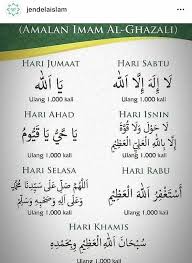 jendelaislam
(AMALAN IMAM AL-GHAZALI)
HARI JUMAAT
يَا اَللّٰه
Ulang 1.000 kali
HARI SABTU
لَا إِلَهَ إِلَّا اللّٰه
Ulang 1.000 kali
HARI AHAD
يَا حَيُّ يَا قَيُّومُ
Ulang 1.000 kali
HARI ISNIN
لَا حَوْلَ وَلَا قُوَّةَ
إِلَّا بِاللّٰهِ الْعَلِيِّ الْعَظِيْمِ
Ulang 1.000 kali
HARI SELASA
اَللّٰهُمَّ صَلِّ عَلَى سَيِّدِنَا مُحَمَّدٍ
وَعَلَى آلِهِ وَصَحْبِهِ وَسَلِّمْ
Ulang 1.000 kali
HARI RABU
أَسْتَغْفِرُ اللّٰهَ الْعَظِيْمَ
Ulang 1.000 kali
HARI KHAMIS
سُبْحَانَ اللّٰهِ الْعَظِيْمِ وَبِحَمْدِهِ
Ulang 1.000 kali